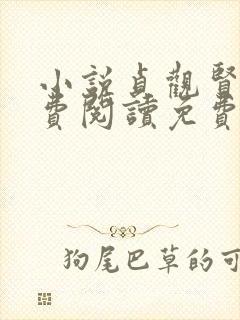 小説貞觀賢
費閱讀免費
狗尾巴草的可